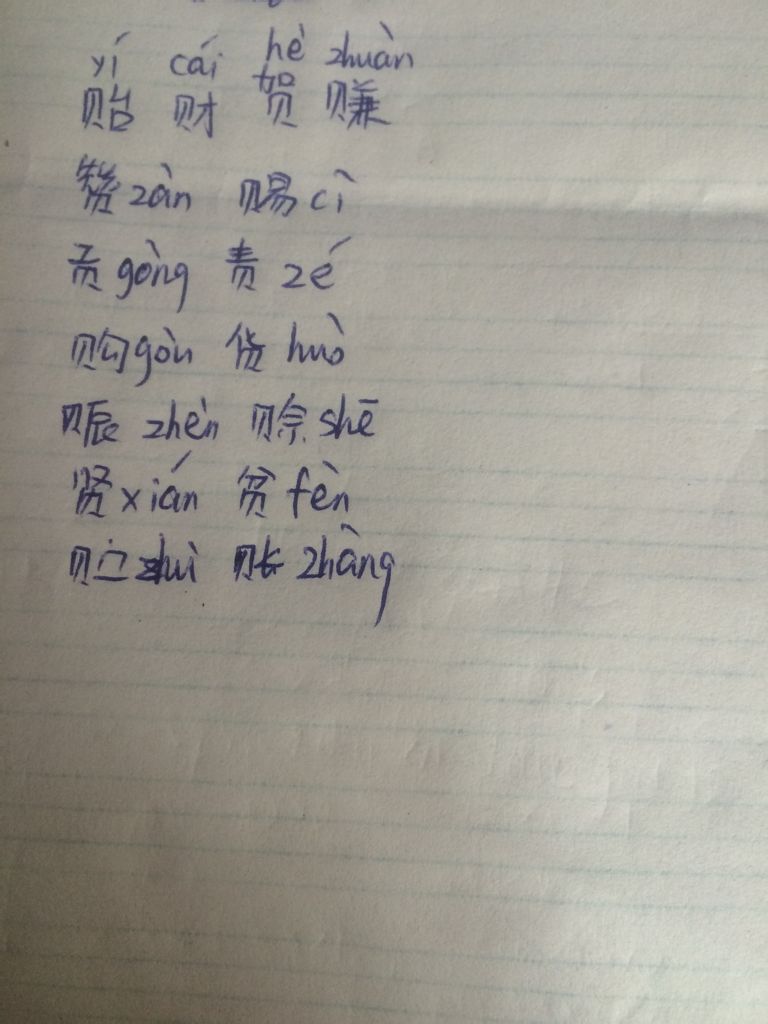 yí cái hè zhuàn
贻 财 贺 赚
赞 zàn 赐 cì
贡 gòng 责 zé
购 gòu 货 huò
赈 zhèn 赊 shē
贤 xián 贫 fèn
zhuì 账 zhàng